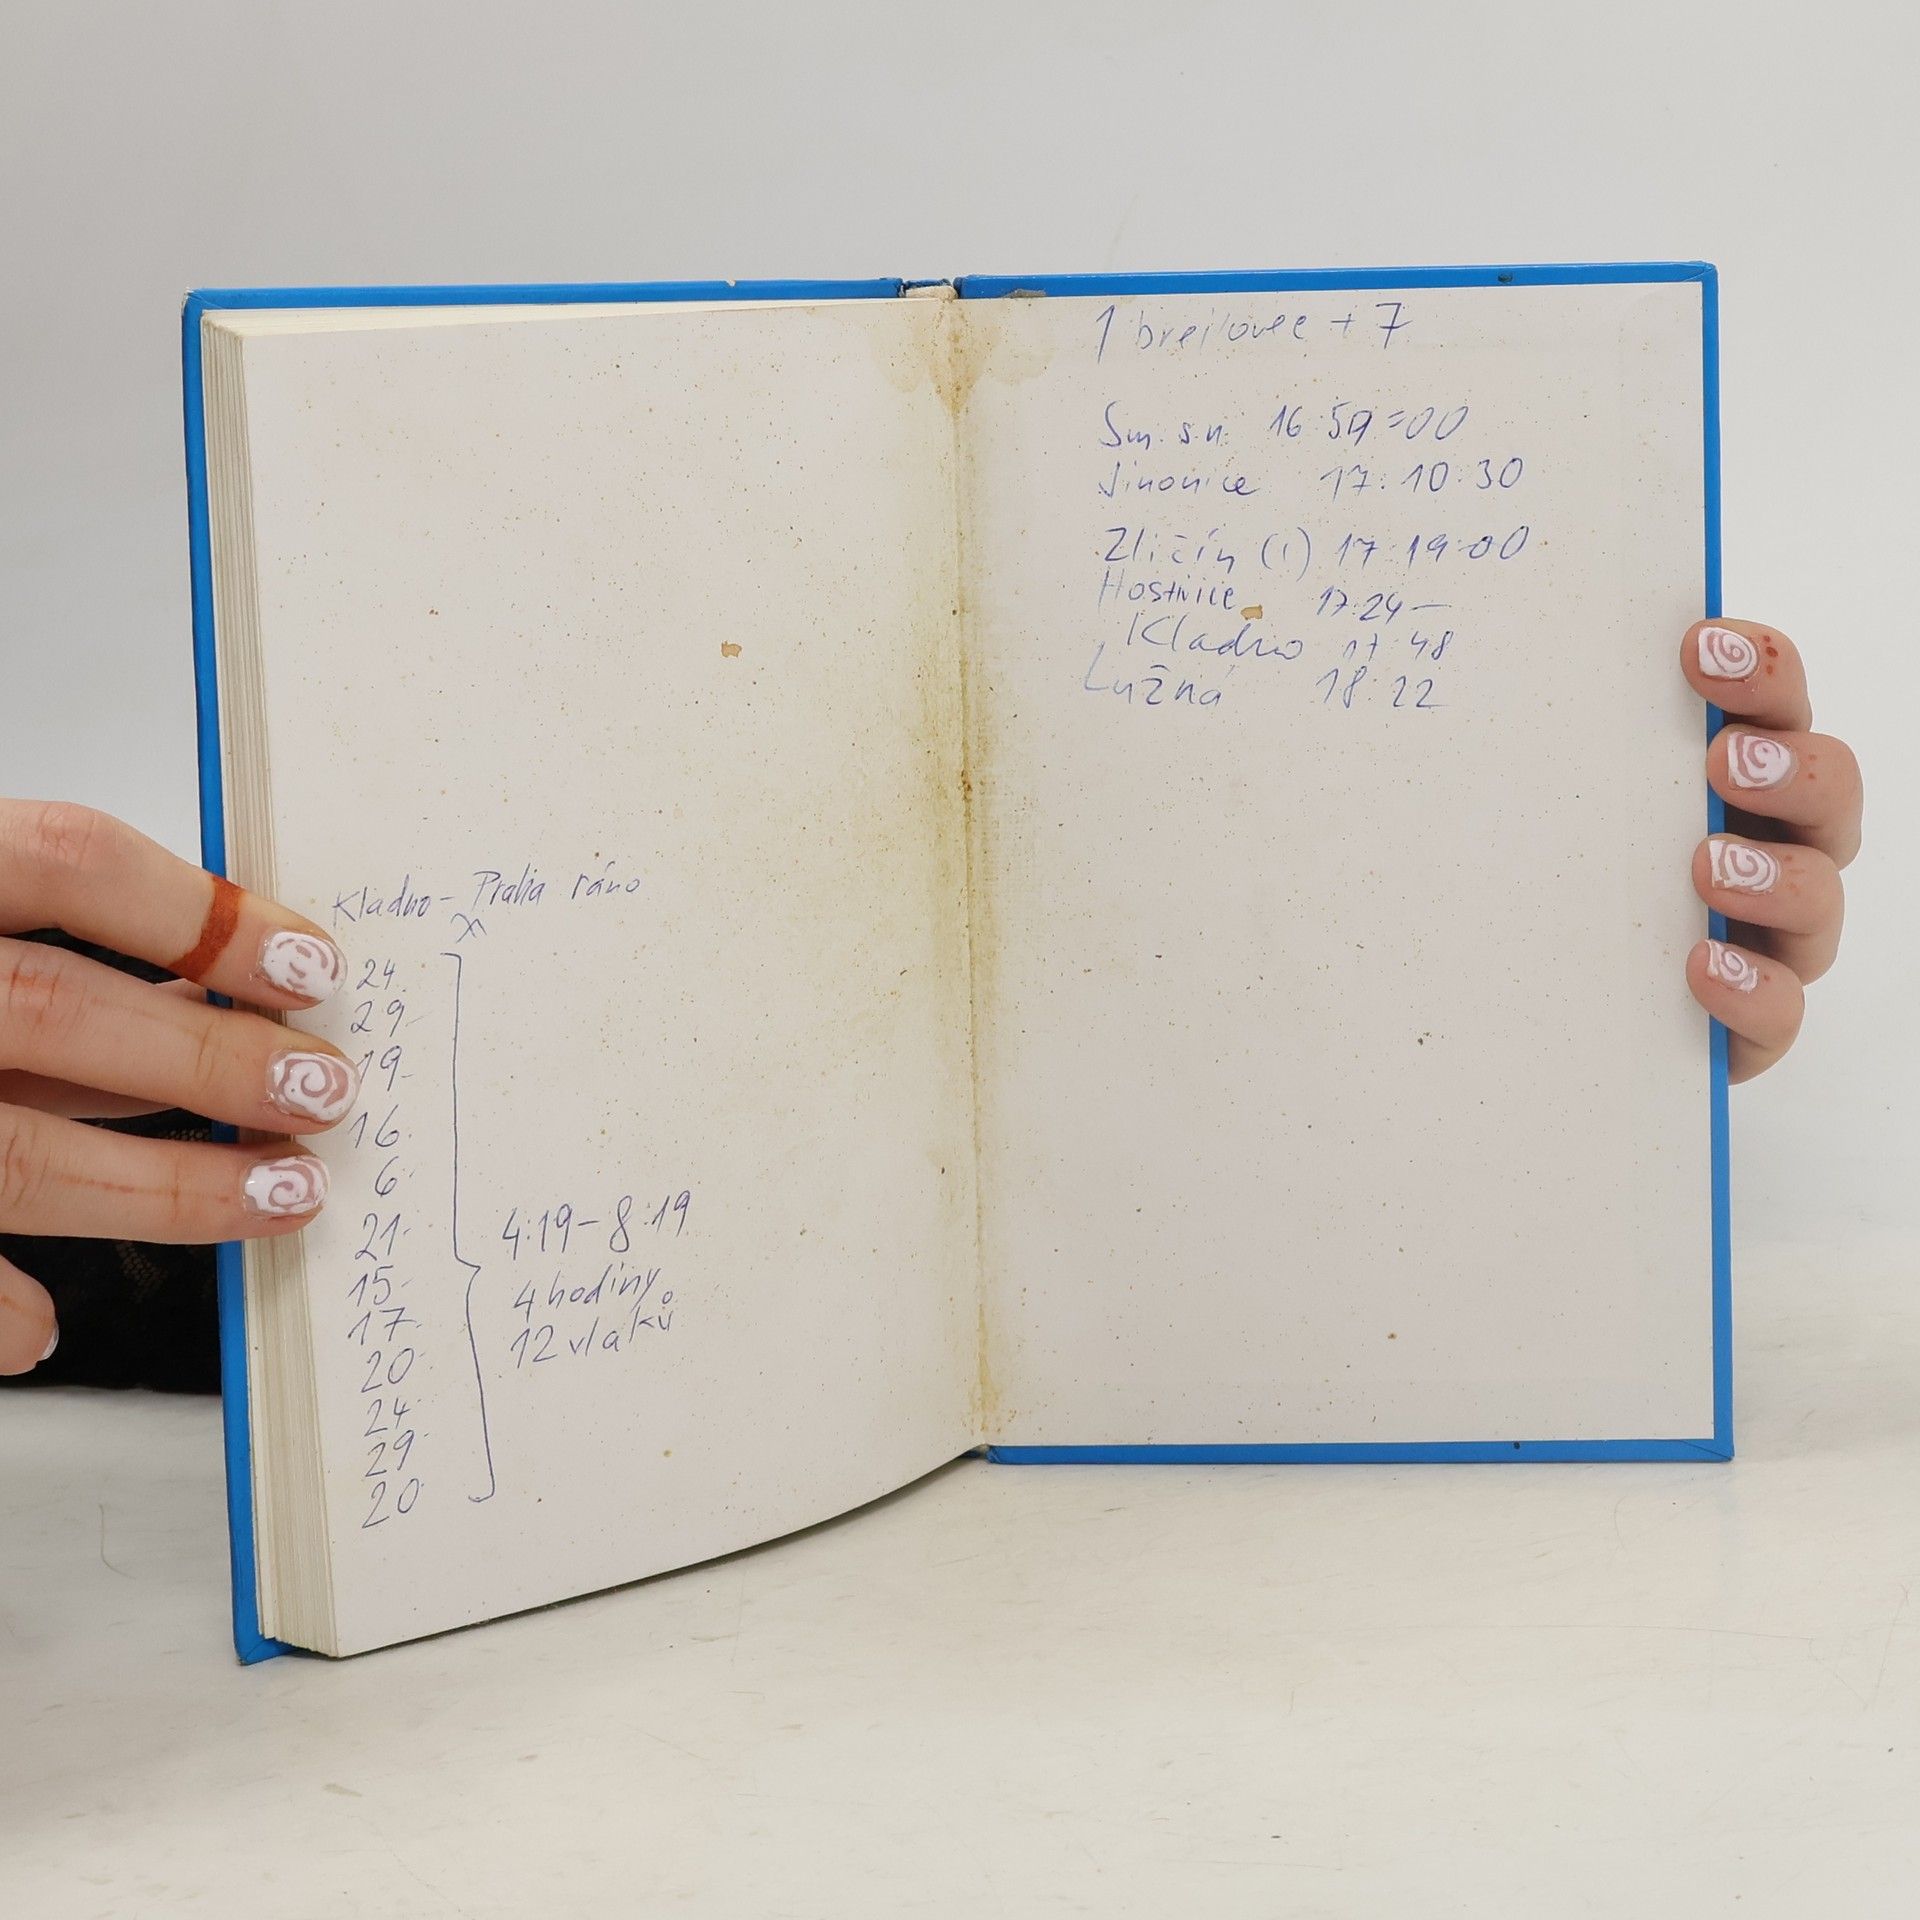 Kladno - Praha ráno
24
29
19
16
6
21
15
17
20
24
29
20
4:19 - 8:19
4 hodiny
12 vlaků
1 brejlovec + 7
Sm. s.n. 16:59:00
Jinonice 17:10:30
Zličín (1) 17:19:00
Hostivice 17:24 -
Kladno 17:48
Lužná 18:22